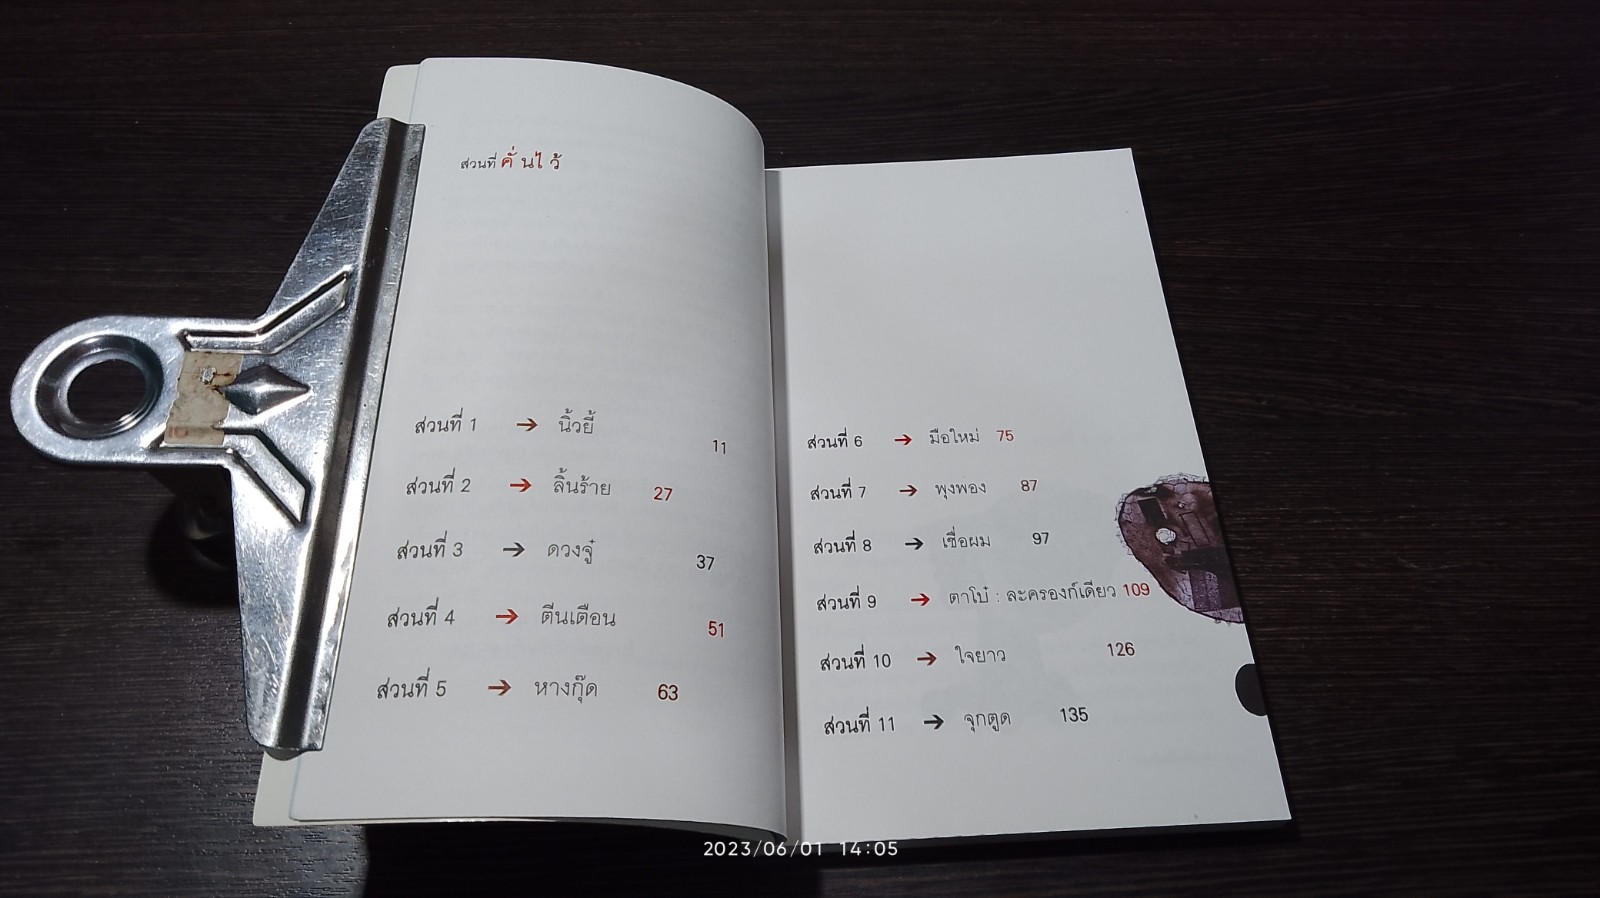 ส่วนที่ คั่นไว้
ส่วนที่ 1 → นิ้วยี้ 11
ส่วนที่ 2 → ลิ้นร้าย 27
ส่วนที่ 3 → ดวงจู๋ 37
ส่วนที่ 4 → ตีนเตือน 51
ส่วนที่ 5 → หางกุ๊ด 63
ส่วนที่ 6 → มือใหม่ 75
ส่วนที่ 7 → พุงพอง 87
ส่วนที่ 8 → เชื่อผม 97
ส่วนที่ 9 → ตาโป๋ : ละครองก์เดียว 109
ส่วนที่ 10 → ใจยาว 126
ส่วนที่ 11 → จุกตูด 135
2023/06/01 14:05